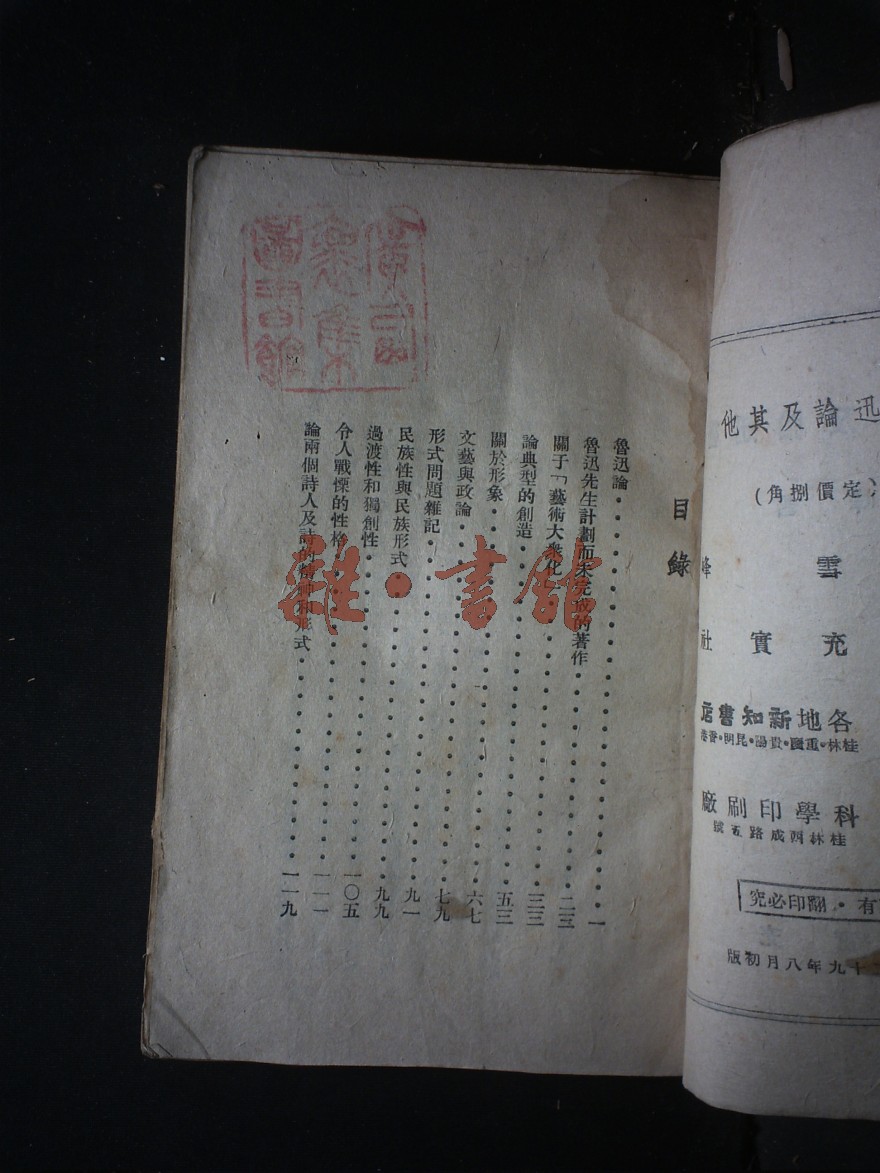 迅論及其他
定價捌角）
雪峰
充實社
各地新知書店
桂林・重慶・貴陽・昆明・香港
科學印刷廠
桂林西成路五號
有・翻印必究
十九年八月初版
目錄
魯迅論 一
魯迅先生計劃而未完成的著作 二三
關于「藝術大衆化」 三三
論典型的創造 五三
關於形象 六七
文藝與政論 七九
形式問題雜記 九一
民族性與民族形式 九九
過渡性和獨創性 一〇五
令人戰慄的性格 一一一
論兩個詩人及詩的精神和形式 一一九
圖書館
雜・書館